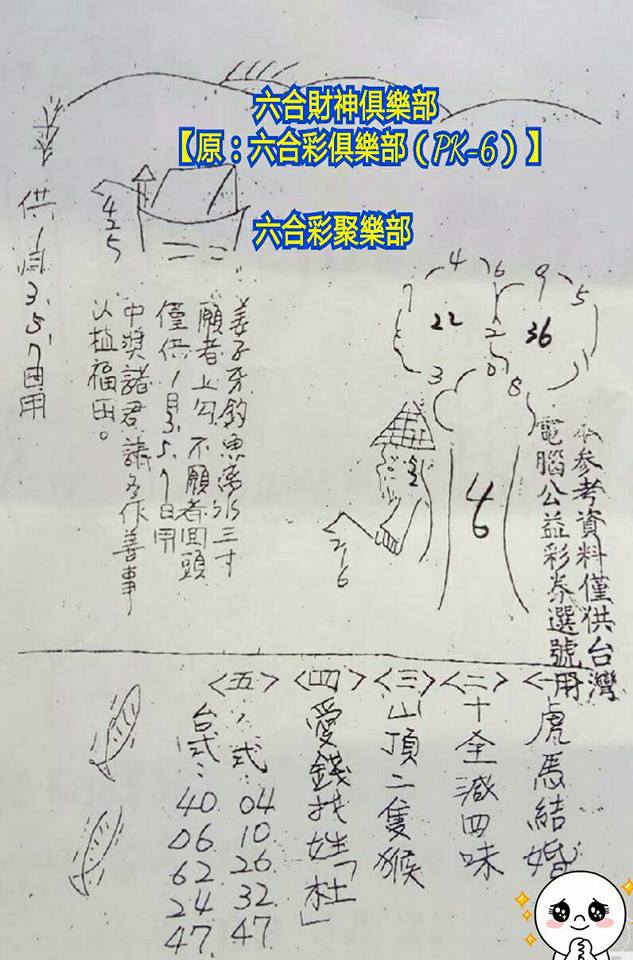 六合財神俱樂部
【原：六合彩俱樂部（PK-6）】
六合彩聚樂部
供1月3.5.7日用
425
姜子牙釣魚離水三寸
願者上勾不願者回頭
僅供1月3.5.7日用
中獎諸君請多作善事
以植福田。
4 6
9 5
22
2
36
3
0
8
46
216
參考資料僅供台灣
電腦公益彩券選號用
虎馬結婚
<二>十全減四味
<三>山頂二隻猴
<四>愛錢找姓「杜」
<五>八式：04 10 26 32 47
台式：40 06 62 24 47